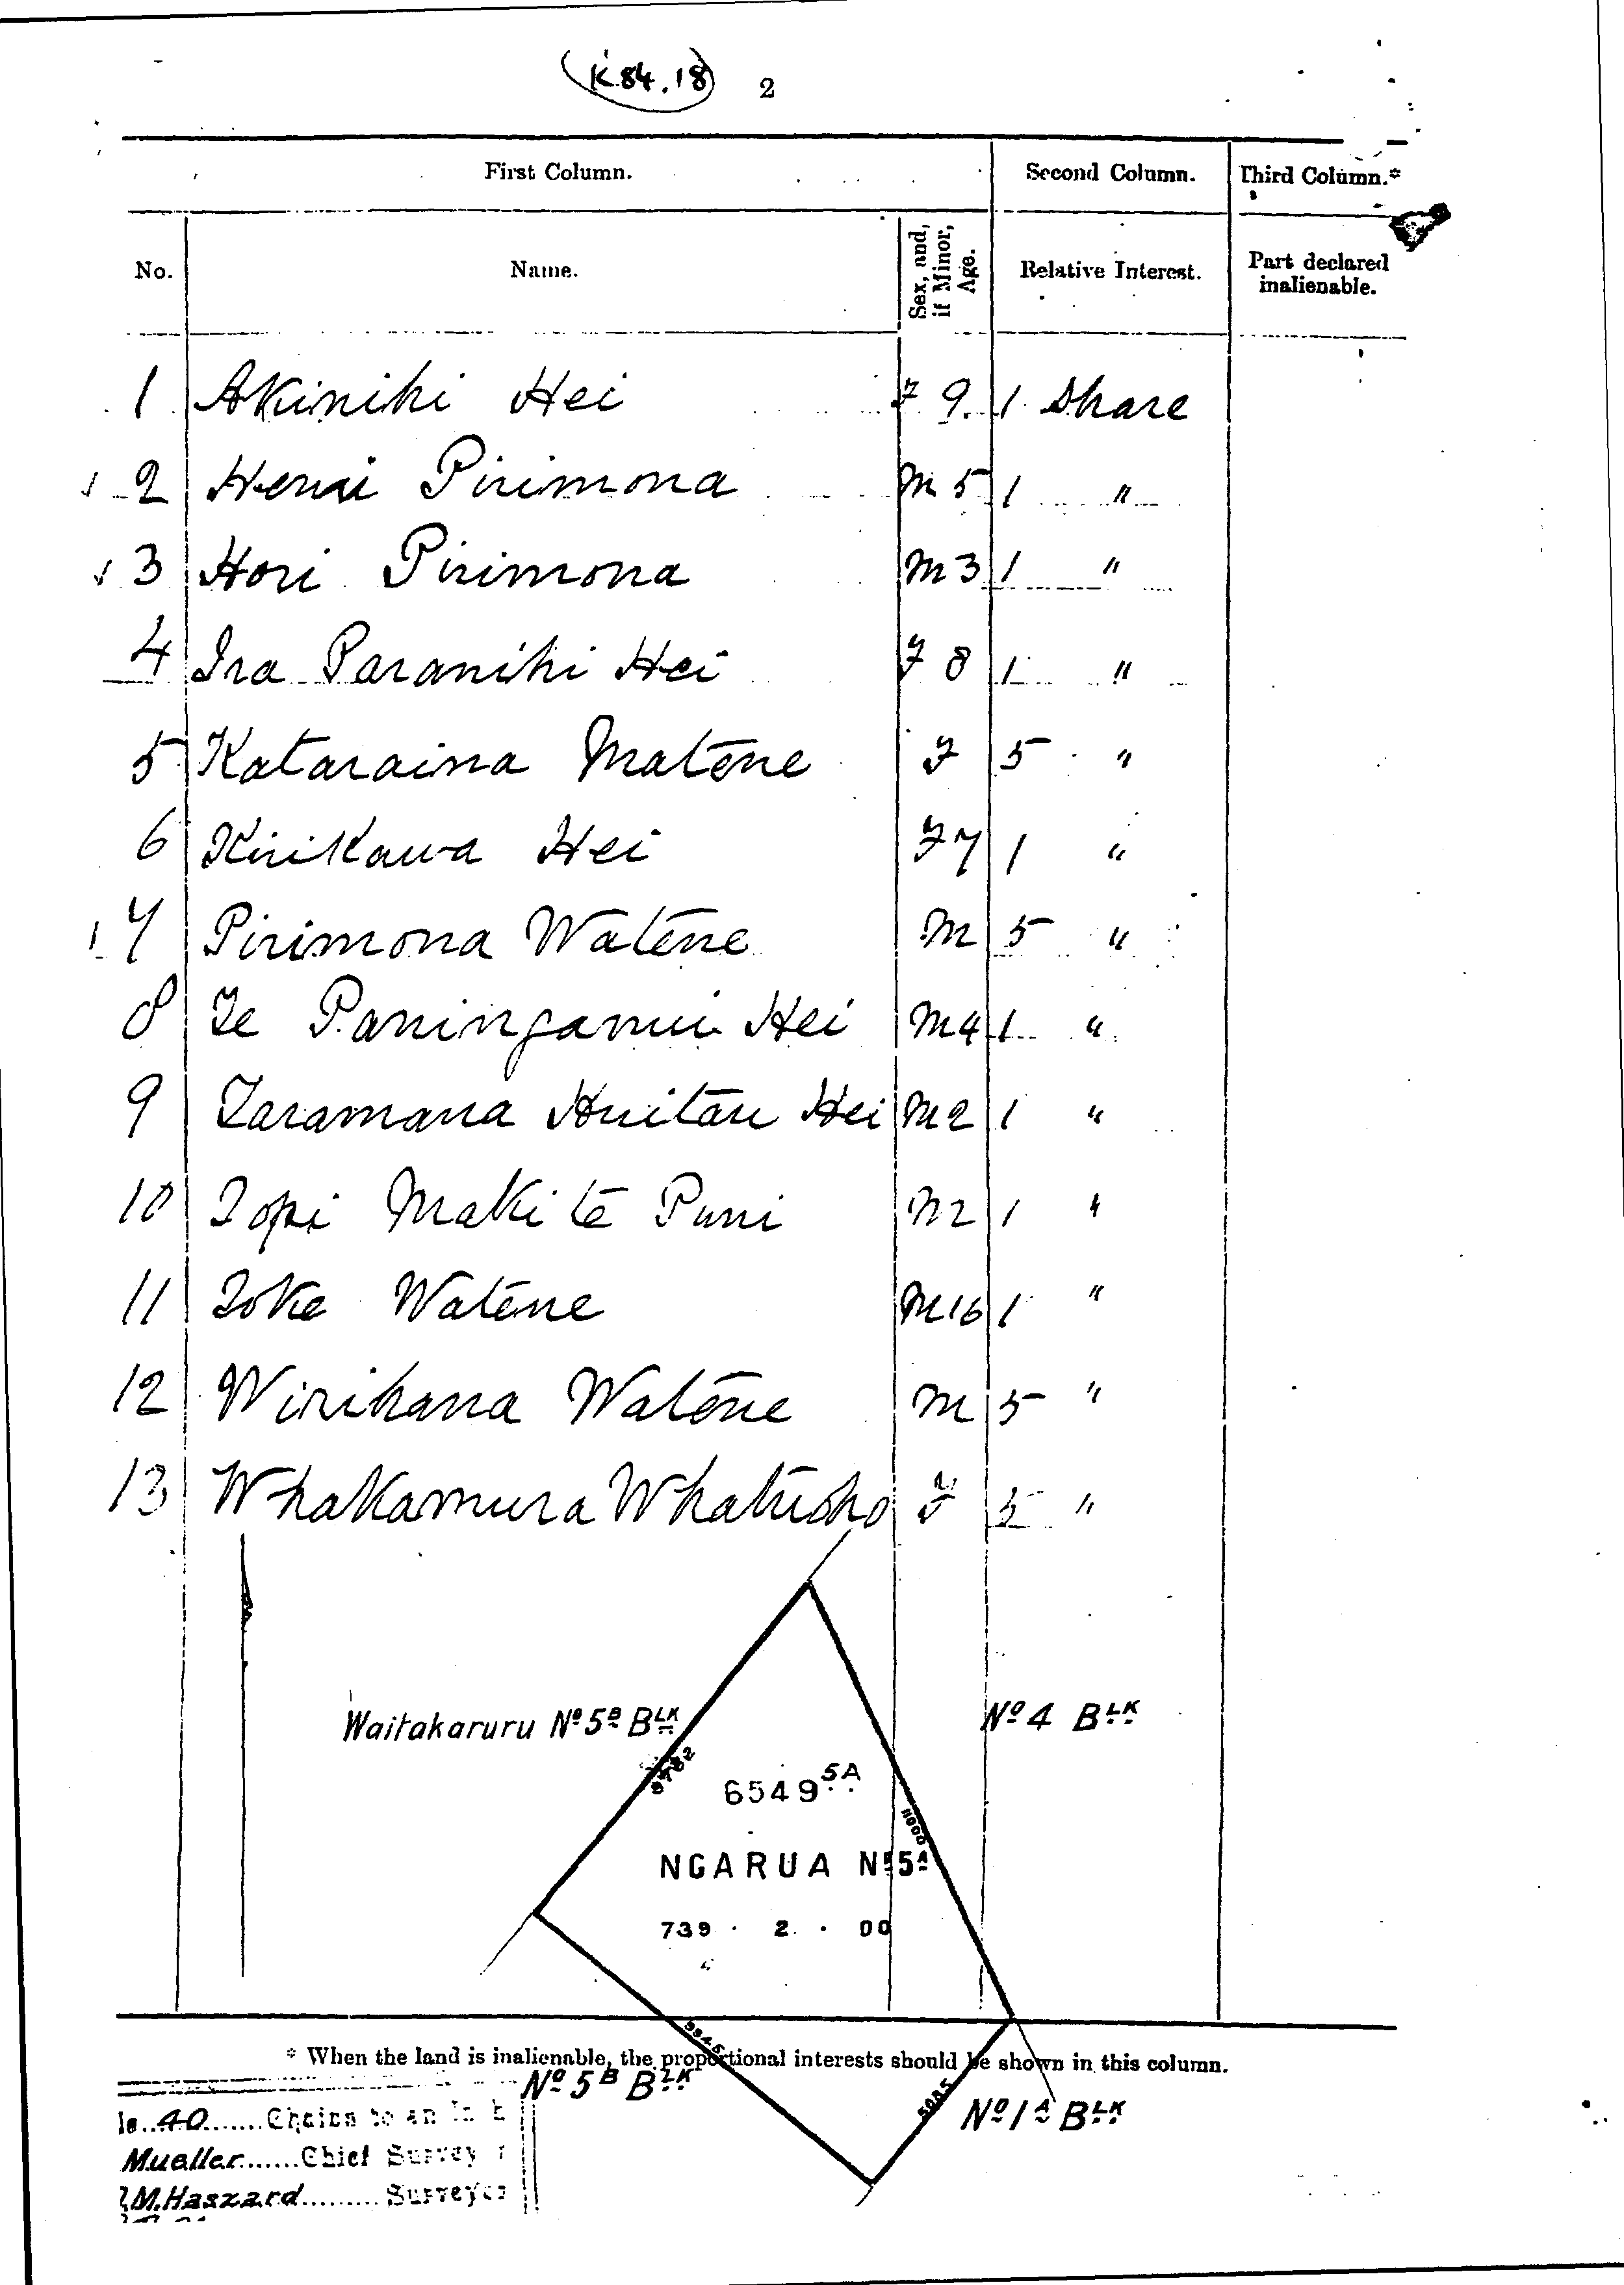 K84.18 2
First Column. Second Column. Third Column.*
No. Name. Sex, and, if Minor, Age. Relative Interest. Part declared inalienable.
1 Akinihi Hei F 9. 1 Share
2 Henui Pirimona M 5 1 "
3 Hori Pirimona M 3 1 "
4 Ira Paranihi Hei F 8 1 "
5 Kataraina Matene F 5 "
6 Kirikawa Hei F 7 1 "
7 Pirimona Watene M 5 "
8 Te Paningamui Hei M 4 1 "
9 Taramana Huitau Hei M 2 1 "
10 Topi Maki te Puni M 2 1 "
11 Toke Watene M 16 1 "
12 Wirihana Watene M 5 "
13 Whakamura F 5 "
Waitakaruru Nº 5ᴮ Bᴸᴷ Nº 4 Bᴸᴷ
6549 5A
11000
NGARUA Nº 5ᴬ
739 · 2 · 00
* When the land is inalienable, the proportional interests should be shown in this column.
Nº 5ᴮ Bᴸᴷ
5085
Nº 1ᴬ Bᴸᴷ
40 Chains to an Inch
Mueller Chief Surveyor
M. Haszard Surveyor